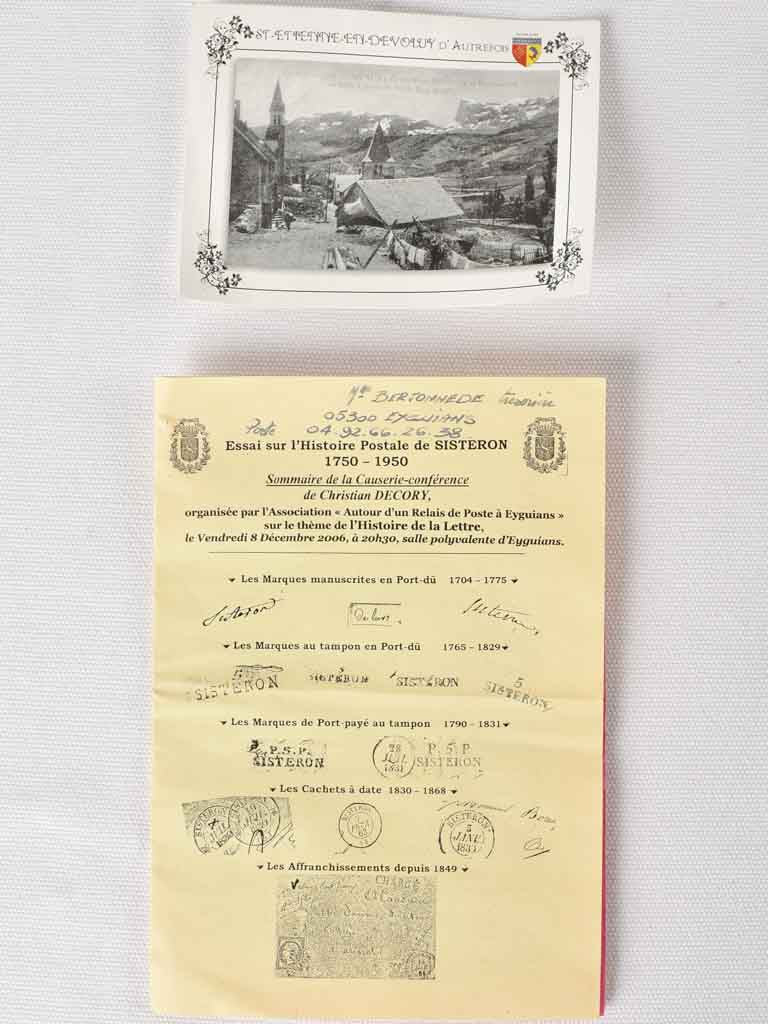 ST-ETIENNE-EN-DEVOLUY D'AUTREFOIS
BERTONNEDE
05300 EYGUIANS
Poste 04.92.66.26.38
Essai sur l'Histoire Postale de SISTERON
1750 – 1950
Sommaire de la Causerie-conférence
de Christian DECORY,
organisée par l'Association « Autour d'un Relais de Poste à Eyguians »
sur le thème de l'Histoire de la Lettre,
le Vendredi 8 Décembre 2006, à 20h30, salle polyvalente d'Eyguians.
Les Marques manuscrites en Port-dû 1704 – 1775
Sisteron
Les Marques au tampon en Port-dû 1765 – 1829
SISTERON SISTERON SISTERON 5 SISTERON
Les Marques de Port-payé au tampon 1790 – 1831
P.S.P. SISTERON 28 JUIL 1831 P.S.P. SISTERON
Les Cachets à date 1830 – 1868
SISTERON 5 JANV
Les Affranchissements depuis 1849
CHARGÉ